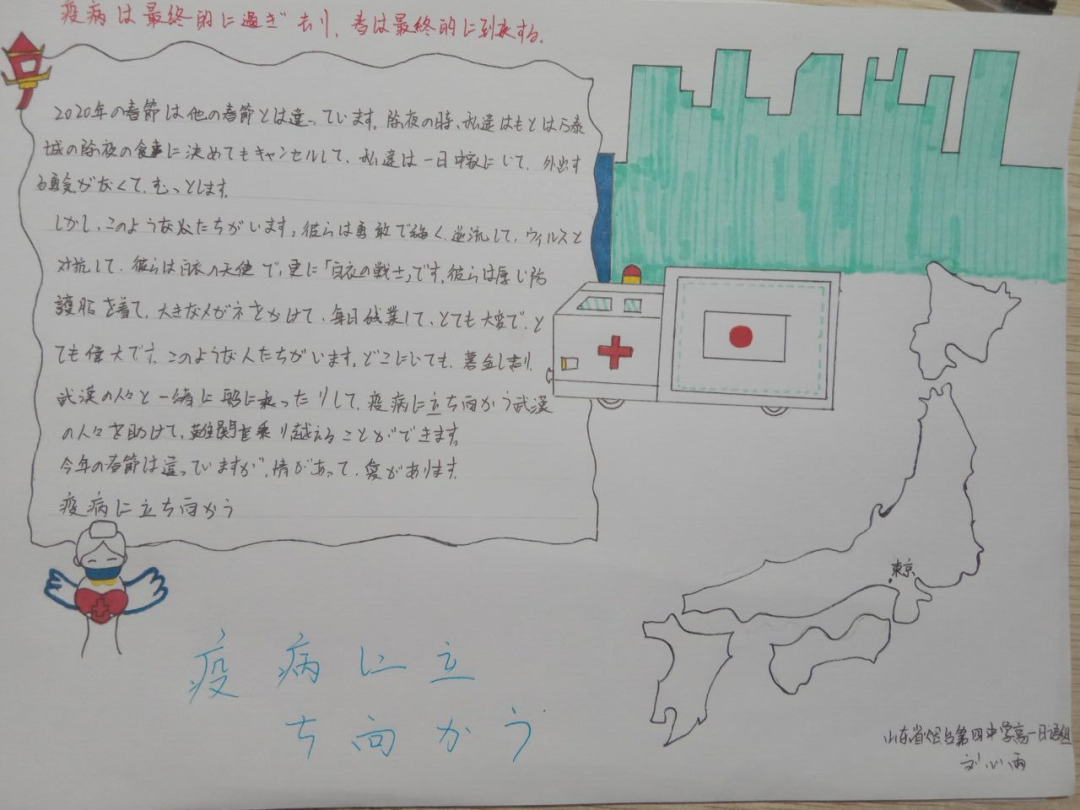 疫病は最終的に過ぎ去り、春は最終的に到来する。
2020年の春節は他の春節とは違っています。除夜の時、私達はもとは万泰
城の除夜の食事に決めてもキャンセルして、私達は一日中家にいて、外出す
る勇気がなくて、むっとします。
しかし、このような人たちがいます。彼らは勇敢で強く、逆流して、ウィルスと
対抗して、彼らは白衣の天使で、更に「白衣の戦士」です。彼らは厚い防
護服を着て、大きなメガネをかけて、毎日残業して、とても大変で、と
ても偉大です。このような人たちがいます。どこにいても、募金したり、
武漢の人々と一緒に船に乗ったりして、疫病に立ち向かう武漢
の人々を助けて、難関を乗り越えることができます。
今年の春節は違っていますが、情があって、愛があります。
疫病に立ち向かう
東京
疫病に立
ち向かう
山东省烟台第四中学高一日语组
刘心雨